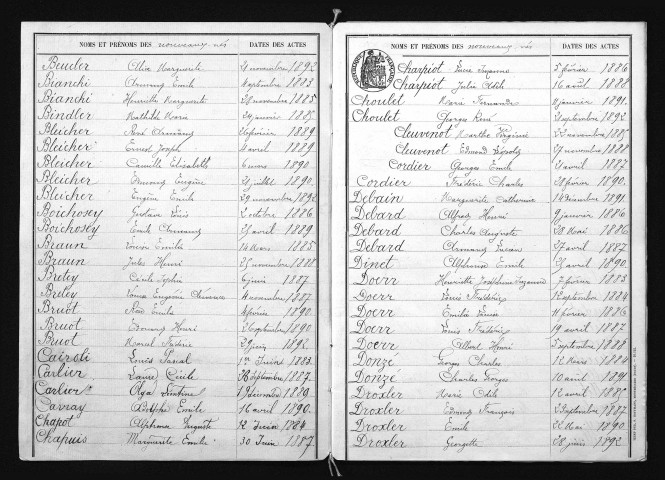 NOMS ET PRÉNOMS DES nouveaux nés DATES DES ACTES
Beucler Alice Marguerite 21 novembre 1892
Bianchi Armand Emile 4 septembre 1883
Bianchi Henriette Marguerite 28 novembre 1885
Bindler Mathilde Maria 24 janvier 1885
Bleicher René 1889
Bleicher Ernest Joseph 4 avril 1889
Bleicher Camille Elisabeth 6 mars 1890
Bleicher Eugène 21 juillet 1890
Bleicher Eugène Emile 29 novembre 1892
Boichosey Gustave Louis 2 octobre 1886
Boichosey Emile 25 avril 1889
Braun Emilie 14 Mars 1885
Braun Jules Henri 25 novembre 1888
Bretey Cécile Sophie 6 juin 1887
Bretey Louise Eugénie 4 novembre 1887
Bruot Rose Emilie 4 février 1890
Bruot Edouard Henri 2 Septembre 1890
Buot Marcel Frédéric 2 juin 1892
Cairoli Louis Pascal 1er Juin 1883
Carlier Laure Cécile 28 Septembre 1887
Carlier Olga 19 décembre 1889
Cavray Adolphe Emile 16 avril 1890
Chapot Alphonse Auguste 12 Juin 1884
Chapuis Marguerite Emilie 30 Juin 1887
NOMS ET PRÉNOMS DES nouveaux nés DATES DES ACTES
Charpiot Lucie Suzanne 5 février 1886
Charpiot Julie Adèle 16 août 1888
Choulet Marie Fernande 11 janvier 1891
Choulet Georges René 21 septembre 1892
Cleuvenot Marthe Virginie 22 novembre 1885
Cleuvenot Edmond Léopold 27 novembre 1888
Cordier Georges Emile 21 avril 1887
Cordier Frédéric Charles 28 février 1890
Debain Marguerite Catherine 14 décembre 1891
Debard Alfred Henri 9 janvier 1886
Debard Charles Auguste 28 Mai 1886
Debard Armand Lucien 27 avril 1887
Dinet Alphonse Emile 25 avril 1890
Doerr Henriette Joséphine Suzanne 7 février 1883
Doerr Louis Frédéric 12 septembre 1884
Doerr Emilie Louise 11 février 1886
Doerr Louis Frédéric 19 avril 1887
Doerr Albert Henri 5 septembre 1888
Donzé Georges Charles 12 Mars 1884
Donzé Charles Georges 10 avril 1891
Droxler Marie Adèle 12 avril 1885
Droxler Edmond François 2 Septembre 1887
Droxler Emile 22 Mai 1890
Droxler Georgette 28 juin 1892